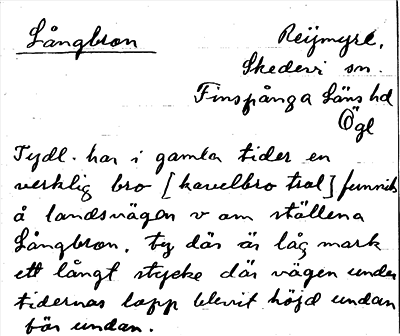 Långbron
Reijmyre,
Skedevi sn.
Finspånga Läns hd
Ögl
Tydl. har i gamla tider en
verklig bro [kavelbro trol] funnits
å landsvägen v om ställena
Långbron, ty där är låg mark
ett långt stycke där vägen under
tidernas lopp blevit höjd undan
för undan.